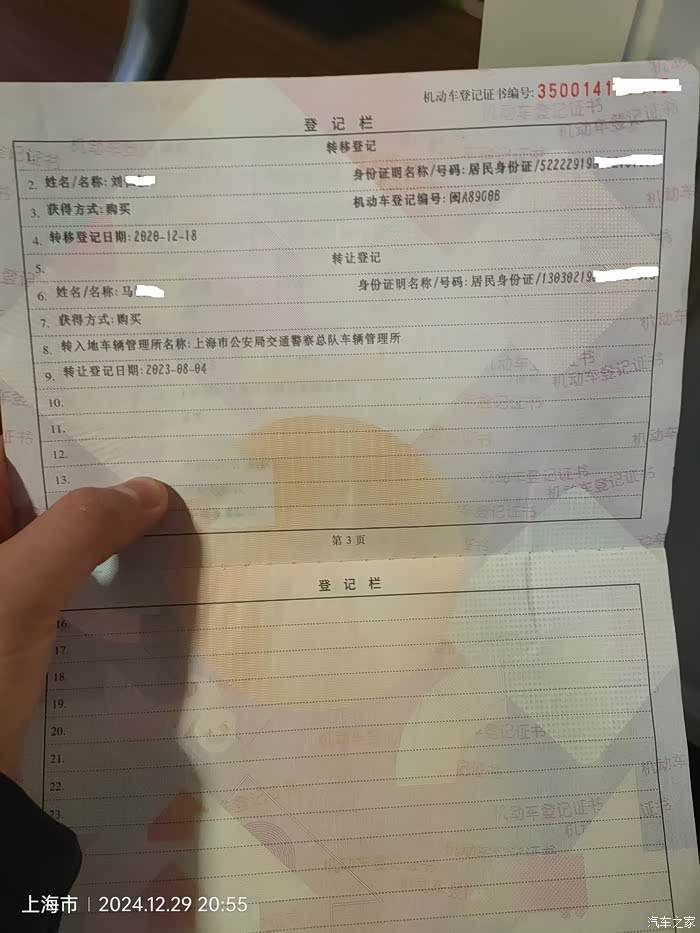 机动车登记证书编号:3500141
登 记 栏
1. 转移登记
2. 姓名/名称:刘 身份证明名称/号码:居民身份证/52222919
3. 获得方式:购买 机动车登记编号:闽A89G0B
4. 转移登记日期:2020-12-18
5. 转让登记
6. 姓名/名称:马 身份证明名称/号码:居民身份证/13030219
7. 获得方式:购买
8. 转入地车辆管理所名称:上海市公安局交通警察总队车辆管理所
9. 转让登记日期:2023-08-04
10.
11.
12.
13.
第 3 页
登 记 栏
16.
17.
18.
19.
20.
21.
22.
23.
上海市 | 2024.12.29 20:55
汽车之家